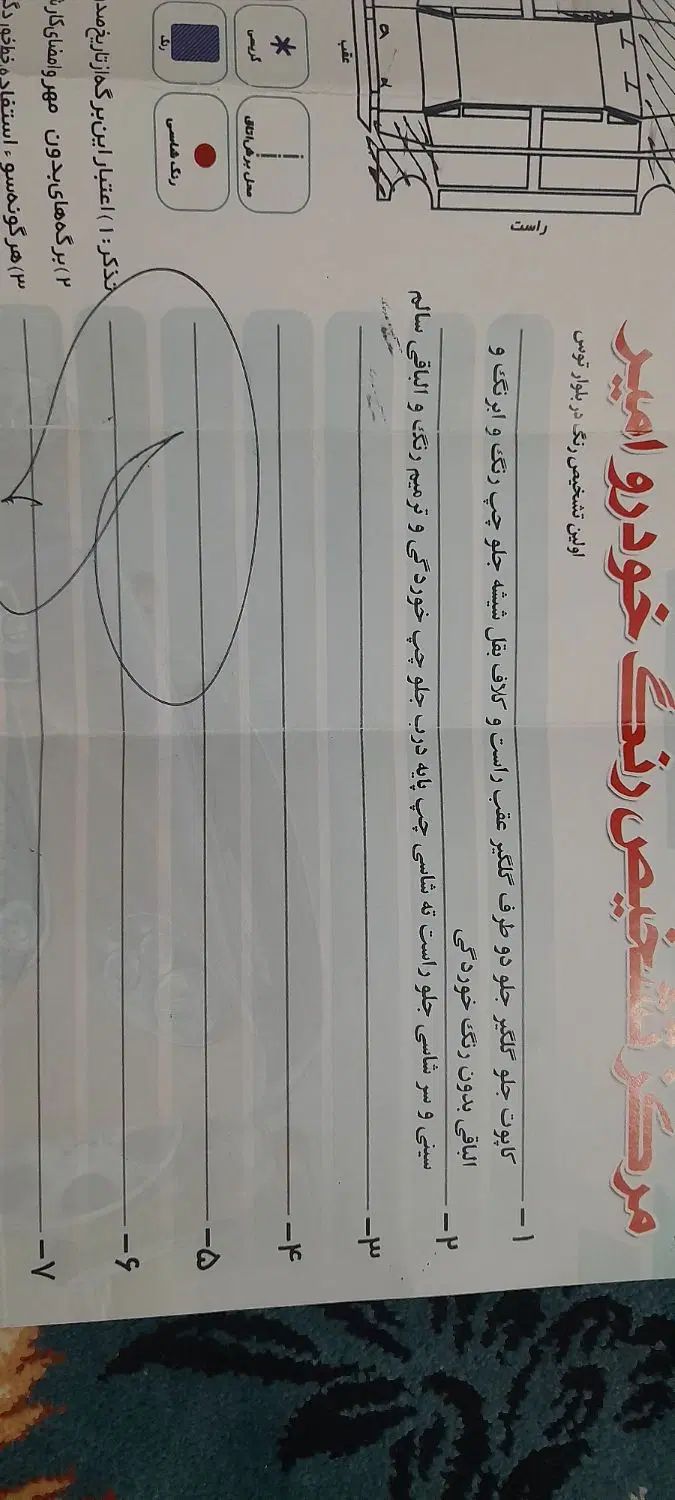 مرکز تشخیص رنگ خودرو امیر
اولین تشخیص رنگ در بلوار توس
۱- کاپوت جلو گلگیر جلو دو طرف گلگیر عقب راست و کلاف بقل شیشه جلو چپ رنگ و ابرنگ و
الباقی بدون رنگ خوردگی
۲- سینی و سر شاسی جلو راست ته شاسی چپ پایه درب جلو چپ خوردگی و ترمیم رنگ و الباقی سالم
۳-
۴-
۵-
۶-
۷-
راست
عقب
گریس
محل برش اتاق
رنگ
رنگ شاسی
تذکر: ۱) اعتبار این برگه از تاریخ
۲) برگه‌های بدون مهر و امضای
۳) هرگونه سوء استفاده، خط خوردگی